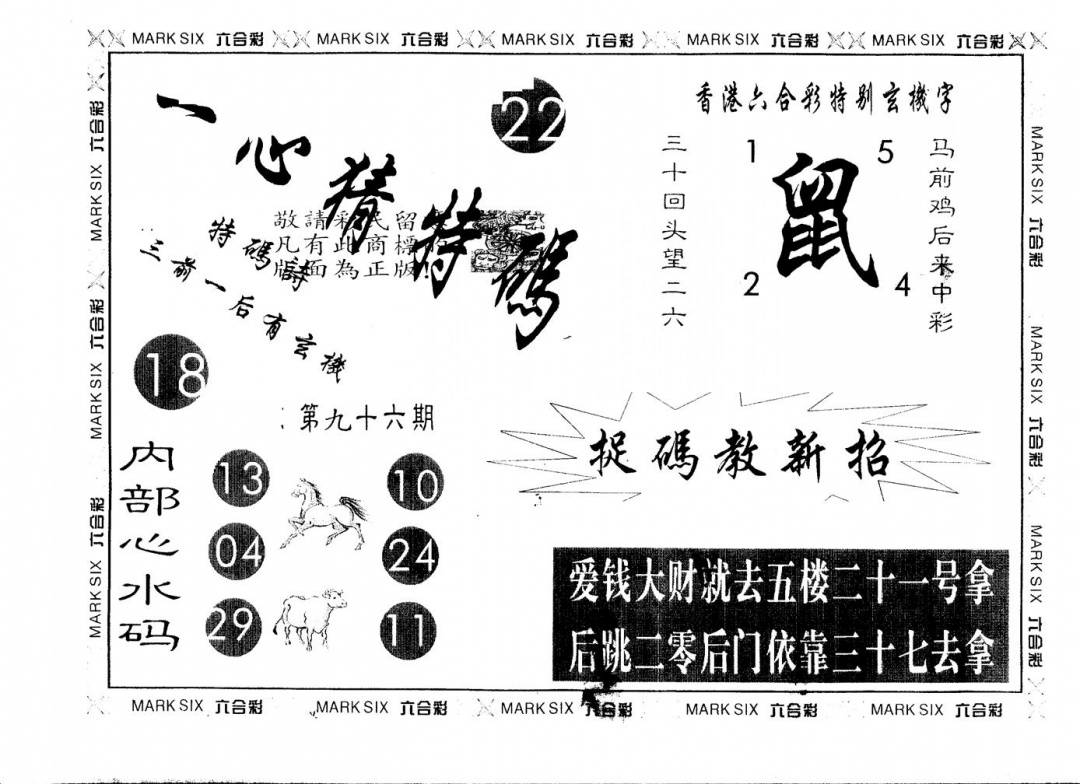 MARK SIX 六合彩 MARK SIX 六合彩 MARK SIX 六合彩 MARK SIX 六合彩 MARK SIX 六合彩
一心猜特碼
22
香港六合彩特别玄機字
敬請彩民留
凡有此商標
版面為正版!
特碼詩
三前一后有玄機
三十回头望二六
1 5
鼠
2 4
马前鸡后来中彩
18
第九十六期
捉碼教新招
内部心水码
13 10
04 24
29 11
爱钱大财就去五楼二十一号拿
后跳二零后门依靠三十七去拿
MARK SIX 六合彩 MARK SIX 六合彩 MARK SIX 六合彩
MARK SIX 六合彩 MARK SIX 六合彩 MARK SIX 六合彩
MARK SIX 六合彩 MARK SIX 六合彩 MARK SIX 六合彩 MARK SIX 六合彩 MARK SIX 六合彩